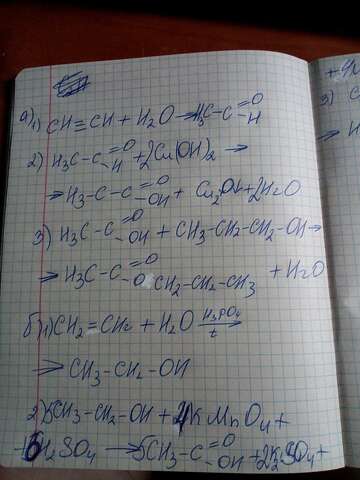 а) 1) CH≡CH + H2O → H3C-C=O H
2) H3C-C=O H + 2Cu(OH)2 →
→ H3C-C=O OH + Cu2O↓ + 2H2O
3) H3C-C=O OH + CH3-CH2-CH2-OH →
→ H3C-C=O O CH2-CH2-CH3 + H2O
б) 1) CH2=CH2 + H2O H3PO4 t →
→ CH3-CH2-OH
2) 5CH3-CH2-OH + 4KMnO4 +
6H2SO4 → 5CH3-C=O OH + 2K2SO4 +
3) C
→ H